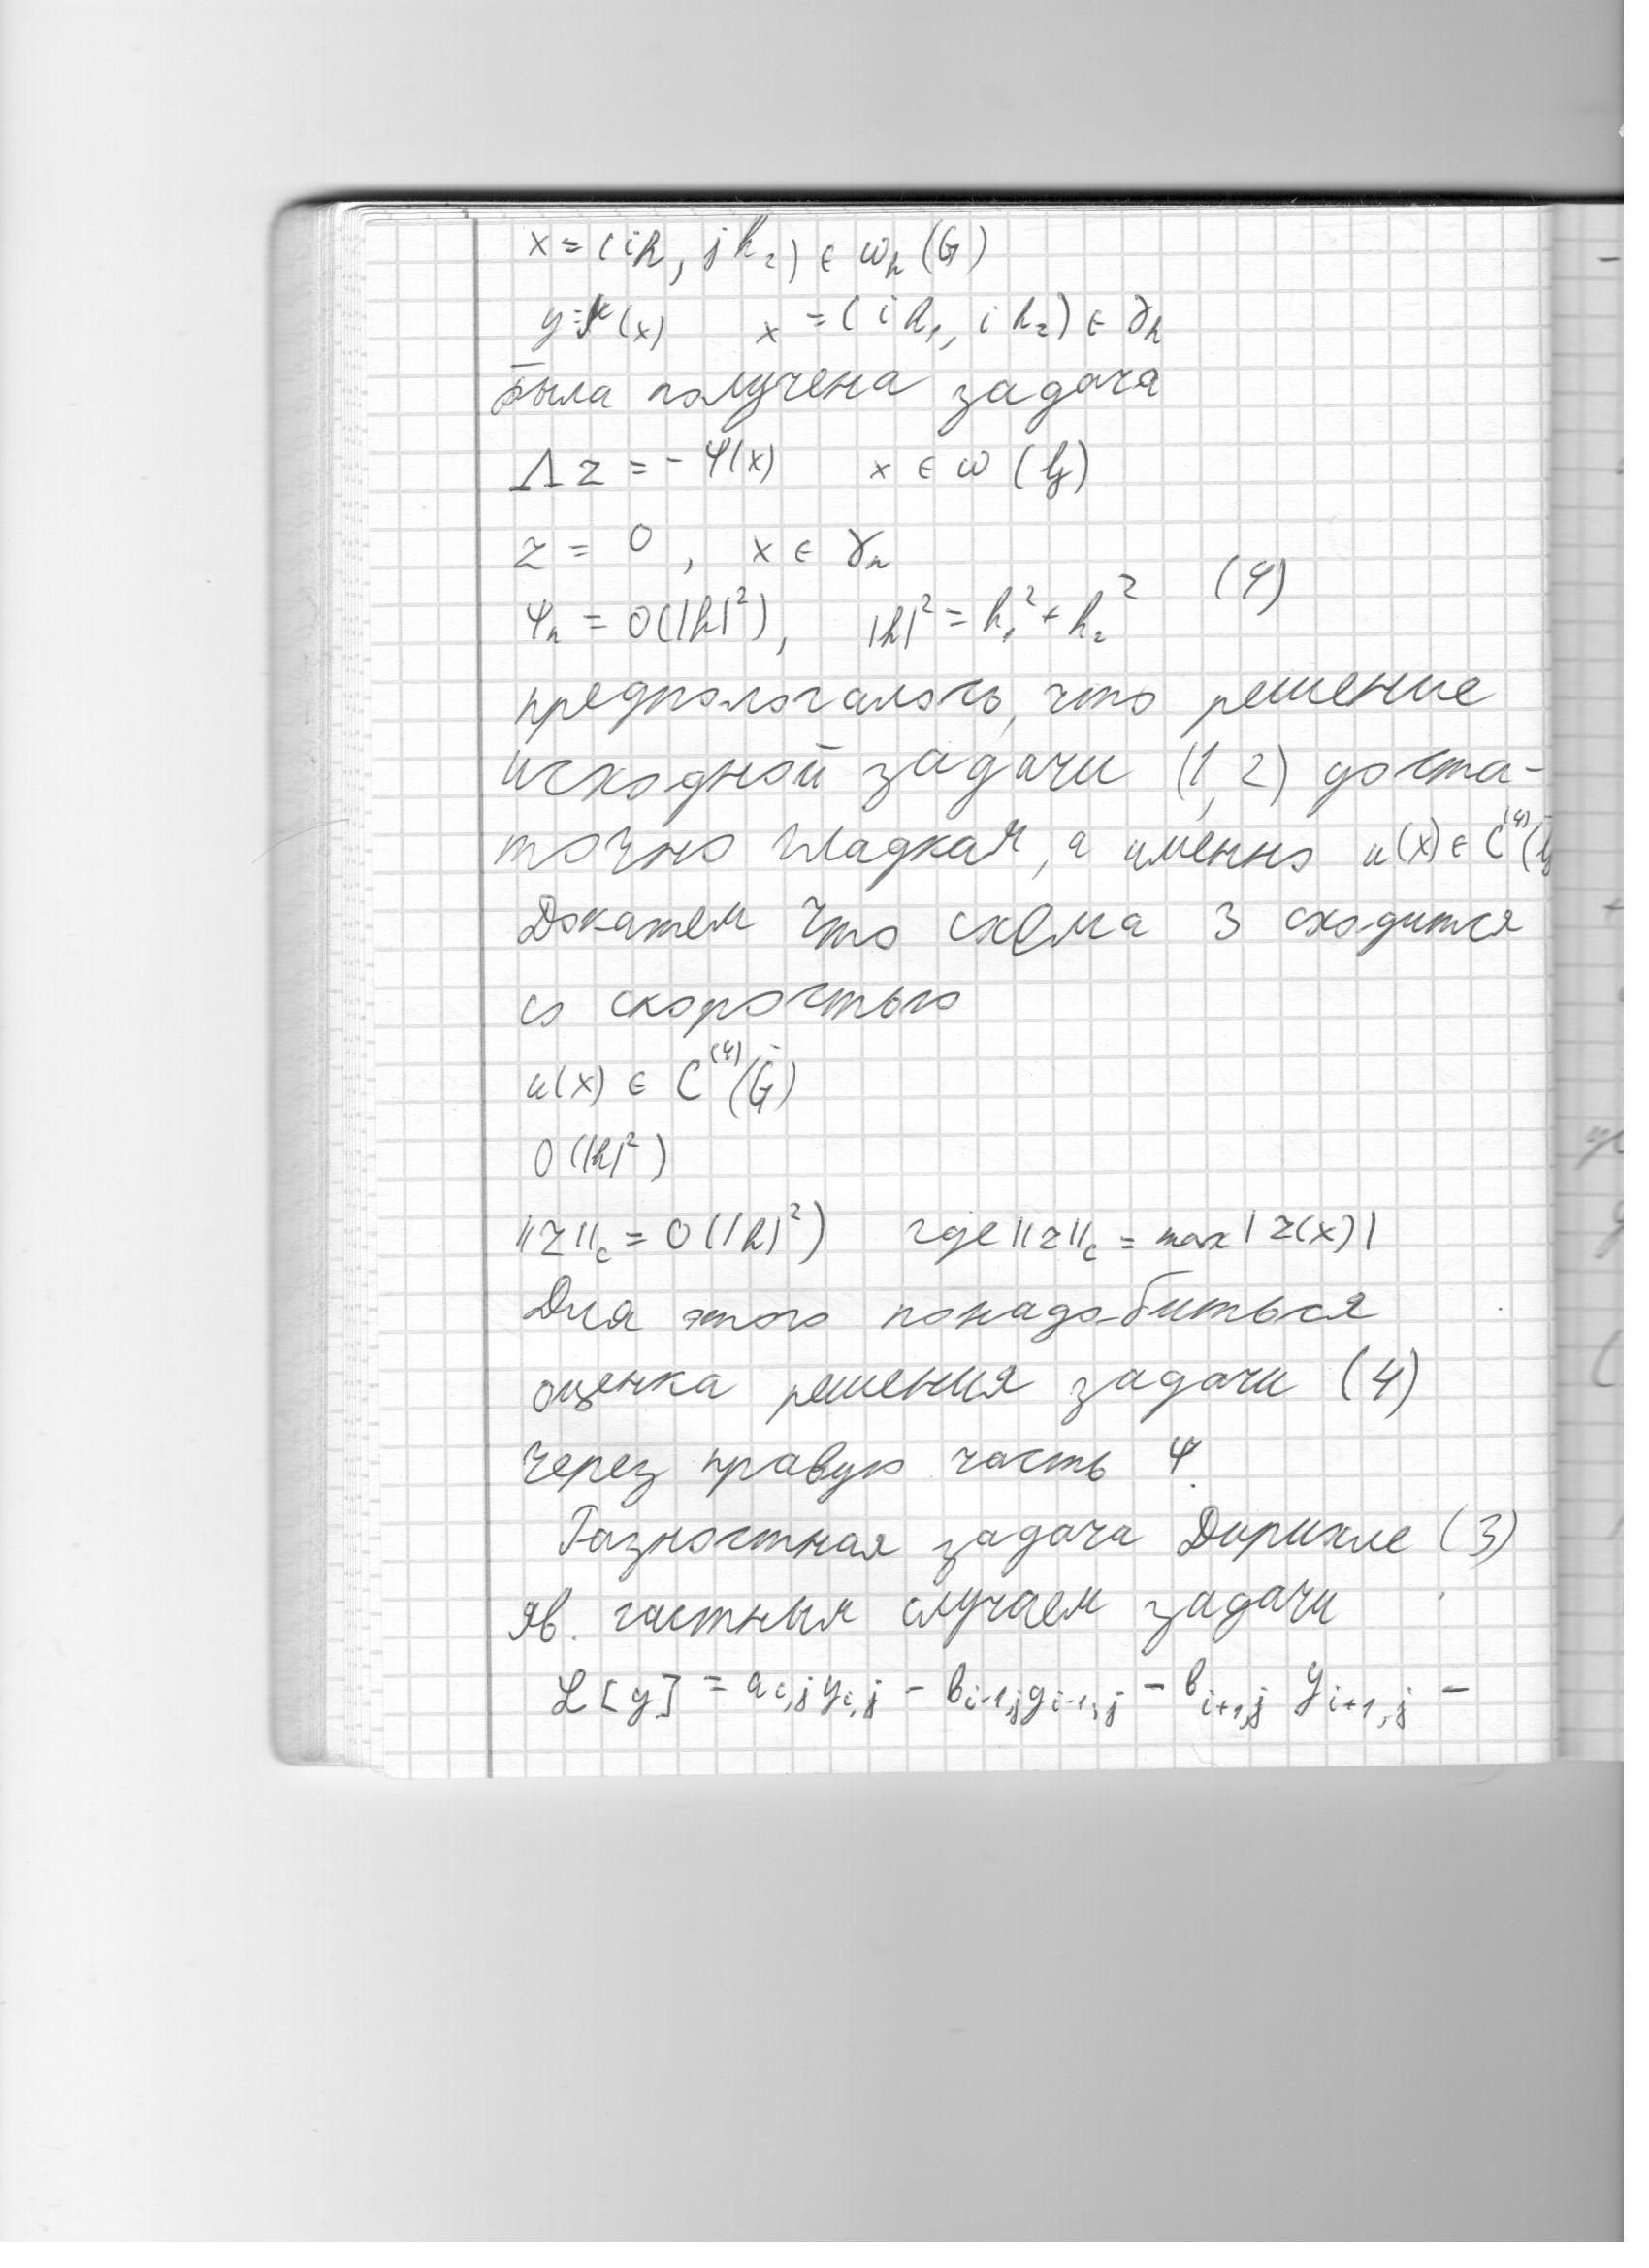 x = (ih, jh₂) ∈ ωₕ(G)
y = μ(x) x = (ih₁, ih₂) ∈ γₕ
была получена задача
Λz = -Ψ(x) x ∈ ω(G)
z = 0, x ∈ γₕ
Ψₕ = O(|h|²), |h|² = h₁² + h₂² (4)
предпологалось, что решение
исходной задачи (1,2) доста-
точно гладкая, а именно u(x) ∈ C⁽⁴⁾(G
Докажем что схема 3 сходится
со скоростью
u(x) ∈ C⁽⁴⁾(G̅)
O(|h|²)
||z||_c = O(|h|²) где ||z||_c = max|z(x)|
Для этого понадобиться
оценка решения задачи (4)
через правую часть Ψ.
Разностная задача Дирихле (3)
яв. частным случаем задачи
L[y] = a_{i,j}y_{i,j} - b_{i-1,j}y_{i-1,j} - b_{i+1,j} y_{i+1,j} -